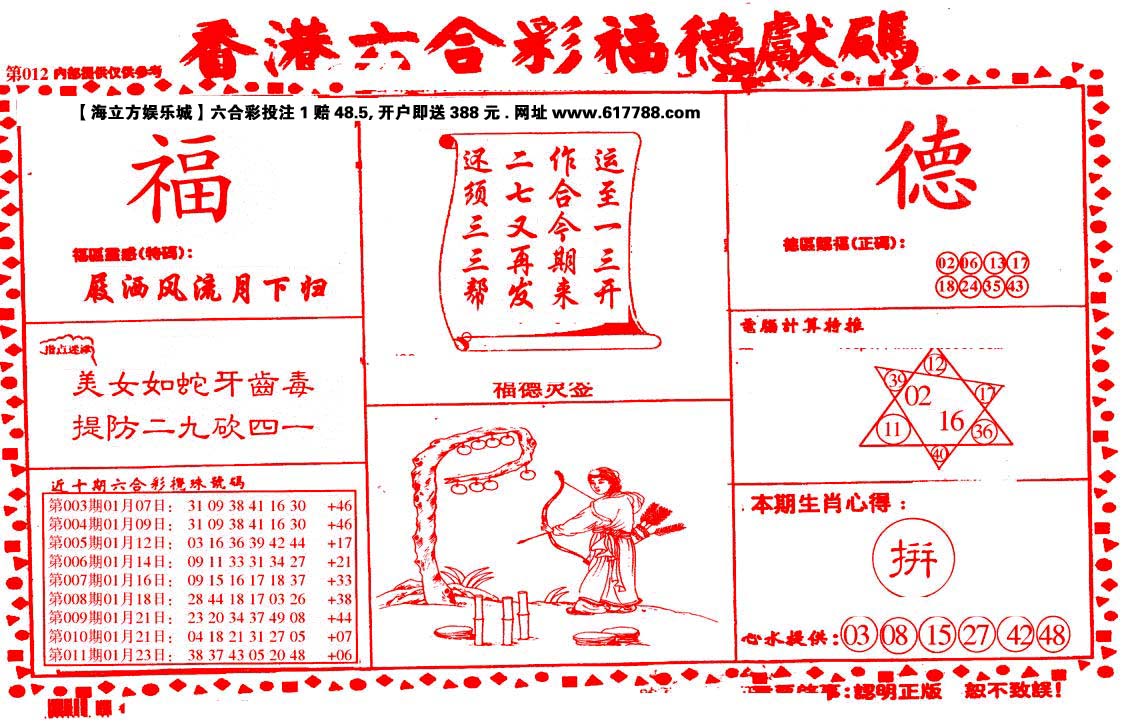 香港六合彩福德獻碼
第012 内部提供仅供参考
【海立方娱乐城】六合彩投注1赔48.5,开户即送388元.网址www.617788.com
福
福區靈感(特碼):
屐洒风流月下归
指点迷津
美女如蛇牙齒毒
提防二九砍四一
近十期六合彩攪珠號碼
第003期01月07日: 31 09 38 41 16 30 +46
第004期01月09日: 31 09 38 41 16 30 +46
第005期01月12日: 03 16 36 39 42 44 +17
第006期01月14日: 09 11 33 31 34 27 +21
第007期01月16日: 09 15 16 17 18 37 +33
第008期01月18日: 28 44 18 17 03 26 +38
第009期01月21日: 23 20 34 37 49 08 +44
第010期01月21日: 04 18 21 31 27 05 +07
第011期01月23日: 38 37 43 05 20 48 +06
运至一三开
作合今期来
二七又再发
还须三三帮
福德灵签
德
德區賜福(正碼):
02 06 13 17
18 24 35 43
電腦計算特推
12
39 02 17
11 16 36
40
本期生肖心得:
拼
心水提供:03 08 15 27 42 48
:認明正版 恕不致誤!